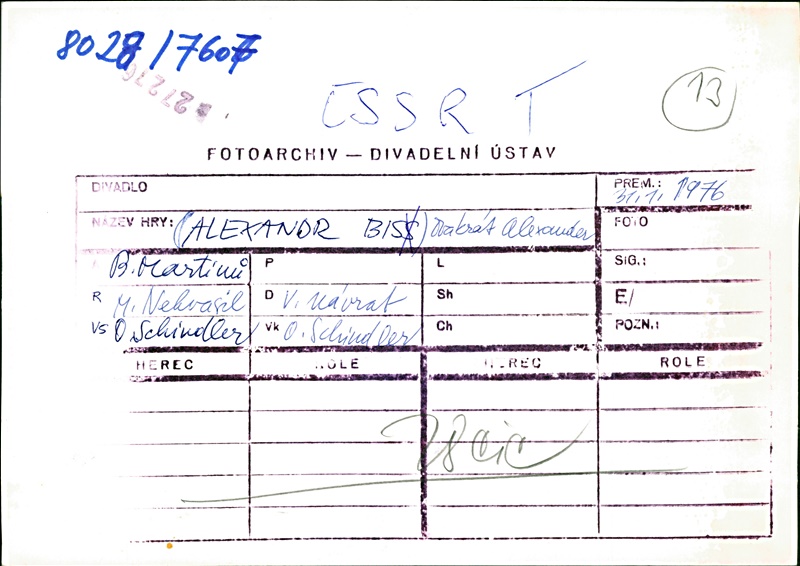 8028/7607
27276
ČSSR T
13
FOTOARCHIV — DIVADELNÍ ÚSTAV
DIVADLO
PREM.: 31.1.1976
NÁZEV HRY: (ALEXANDR BIS) Dvakrát Alexander
FOTO
B. Martinů P L SIG.:
R M. Nekvasil D V. Návrat Sh E/
Vs O. Schindler Vk O. Schindler Ch POZN.:
HEREC ROLE HEREC ROLE